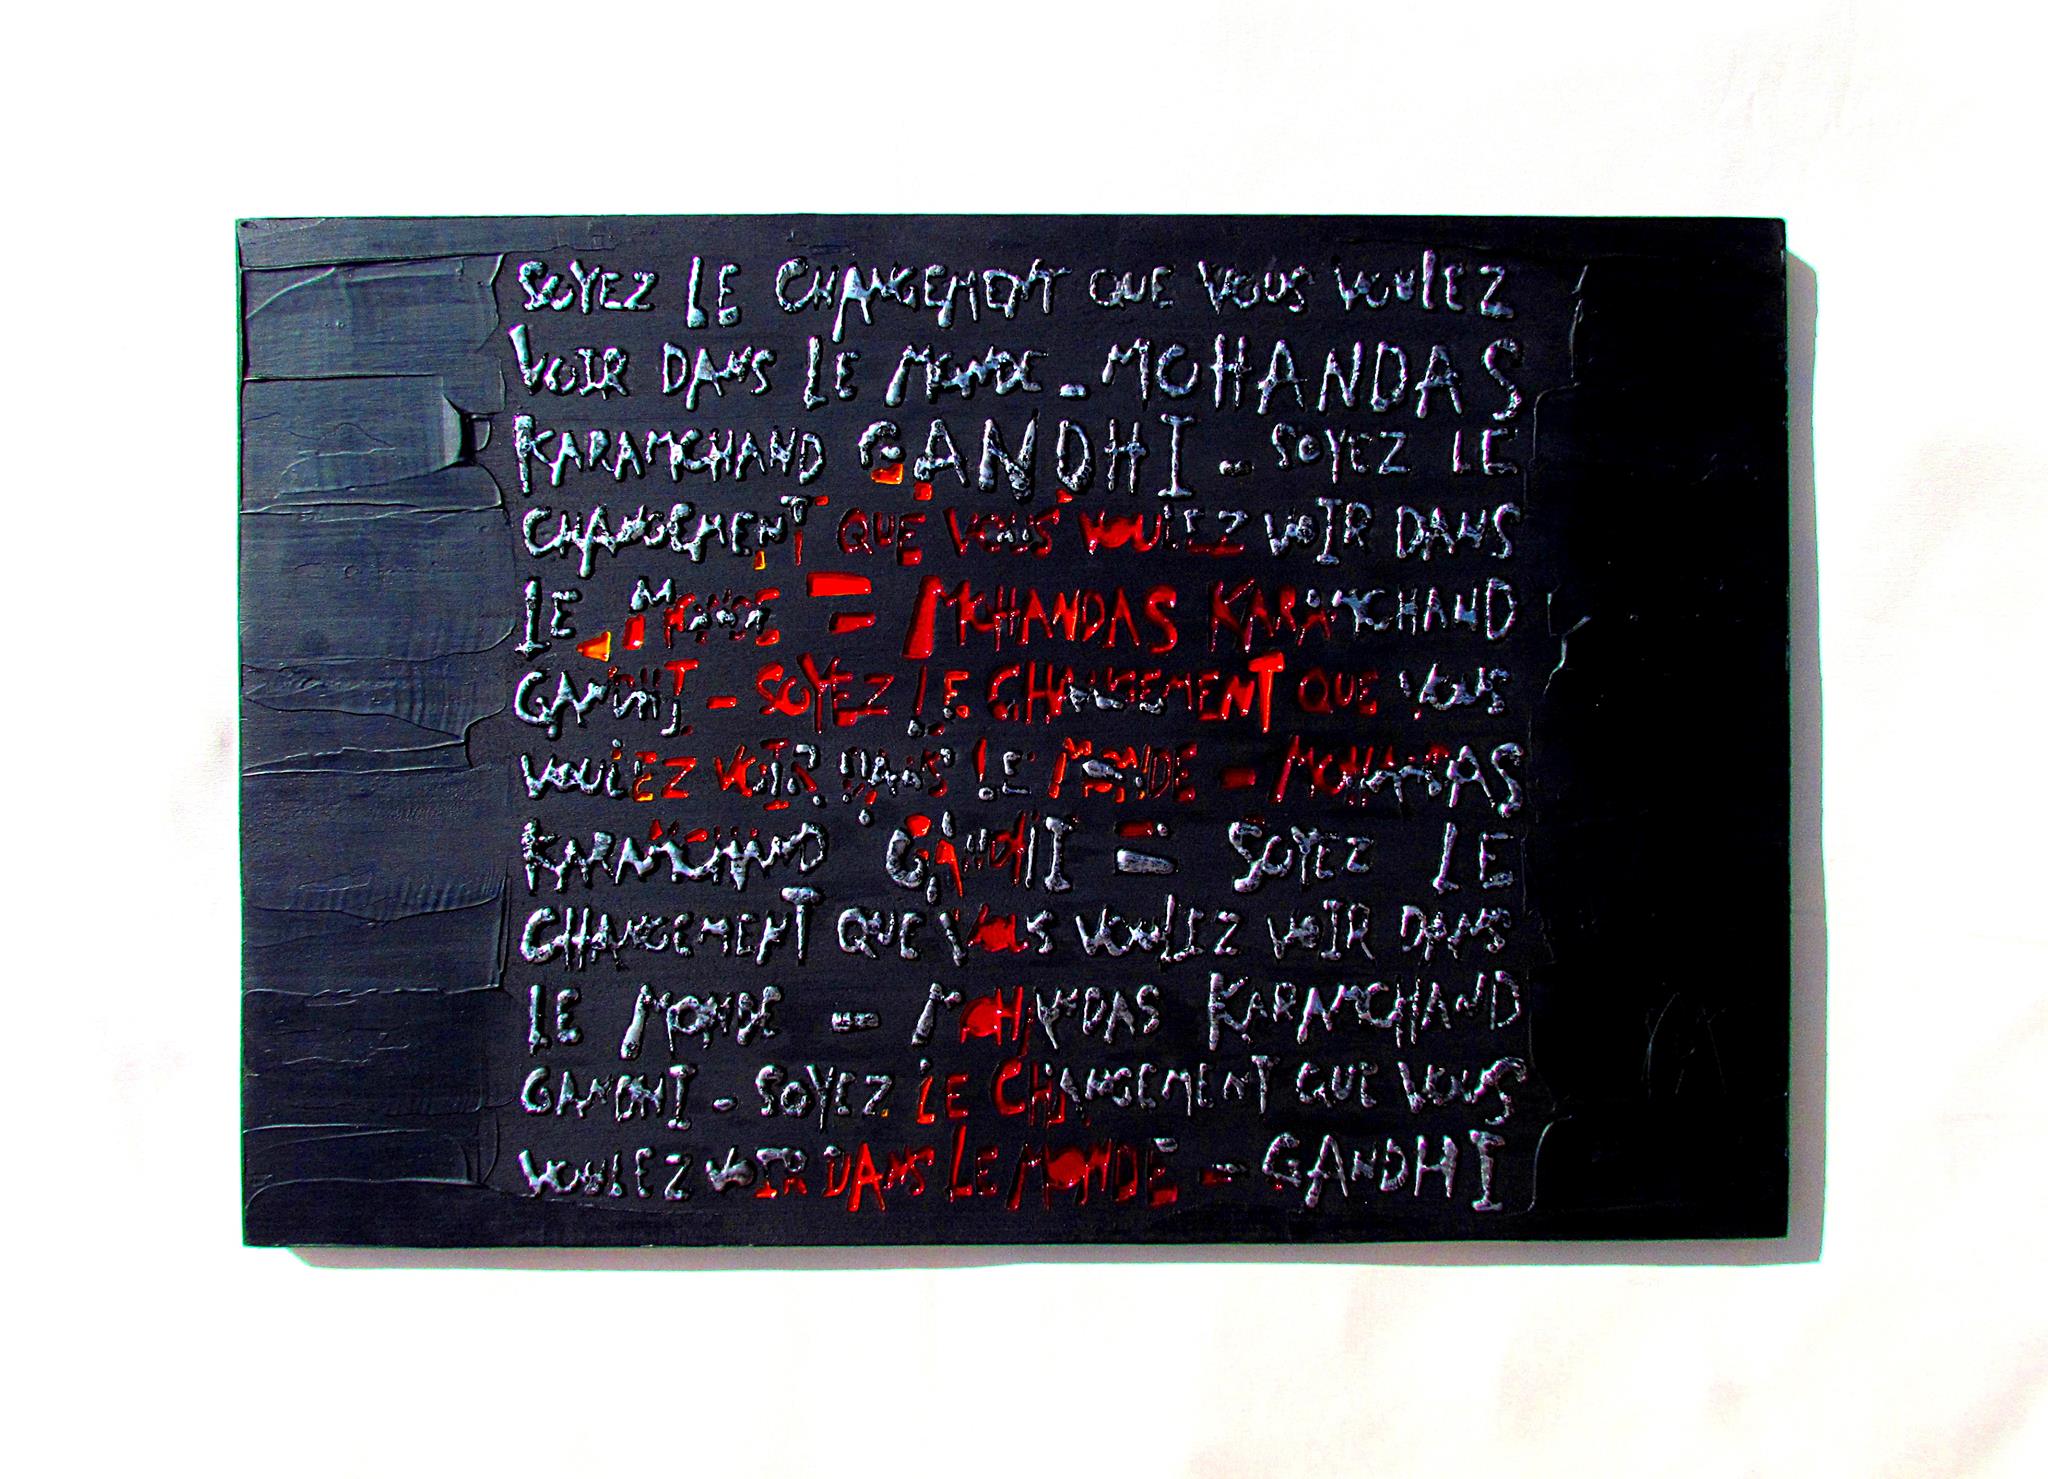 SOYEZ LE CHANGEMENT QUE VOUS VOULEZ
VOIR DANS LE MONDE - MOHANDAS
KARAMCHAND GANDHI - SOYEZ LE
CHANGEMENT QUE VOUS VOULEZ VOIR DANS
LE MONDE - MOHANDAS KARAMCHAND
GANDHI - SOYEZ LE CHANGEMENT QUE VOUS
VOULEZ VOIR DANS LE MONDE - MOHANDAS
KARAMCHAND GANDHI - SOYEZ LE
CHANGEMENT QUE VOUS VOULEZ VOIR DANS
LE MONDE - MOHANDAS KARAMCHAND
GANDHI - SOYEZ LE CHANGEMENT QUE VOUS
VOULEZ VOIR DANS LE MONDE - GANDHI